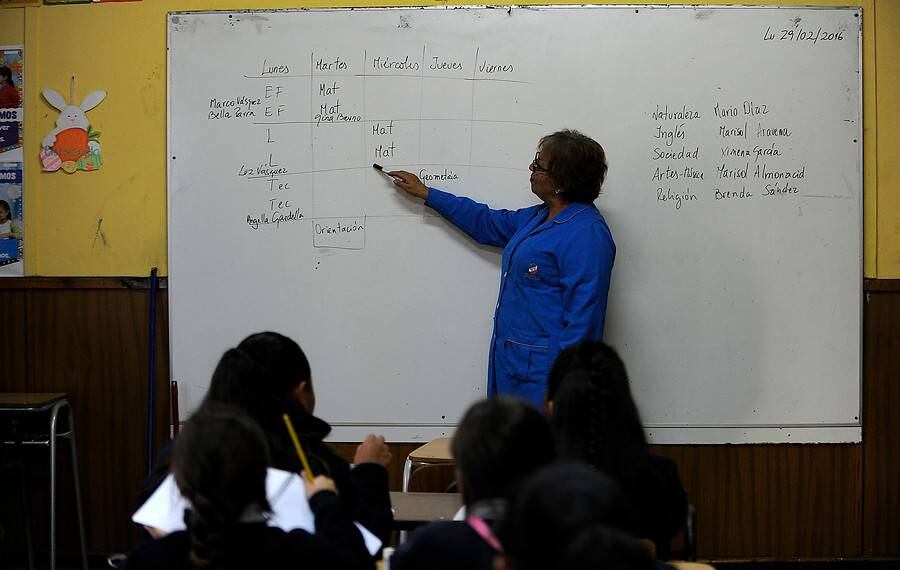 Lu 29/02/2016
Lunes Martes Miércoles Jueves Viernes
EF Mat
Marco Vásquez
Bella Parra EF Mat
L Mat
L Mat
Luz Vásquez
Tec Geometría
Tec
Angella Gardella
Orientación
Naturaleza Mario Díaz
Inglés Marisol Aravena
Sociedad Ximena García
Artes-Música Marisol Almonacid
Religión Brenda Sández
MOS